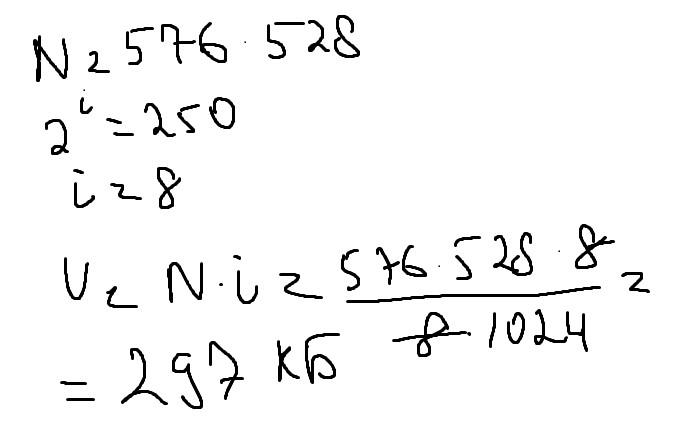 N = 576 · 528
2^i = 250
i = 8
V = N · i = (576 · 528 · 8) / (8 · 1024) =
= 297 кБ